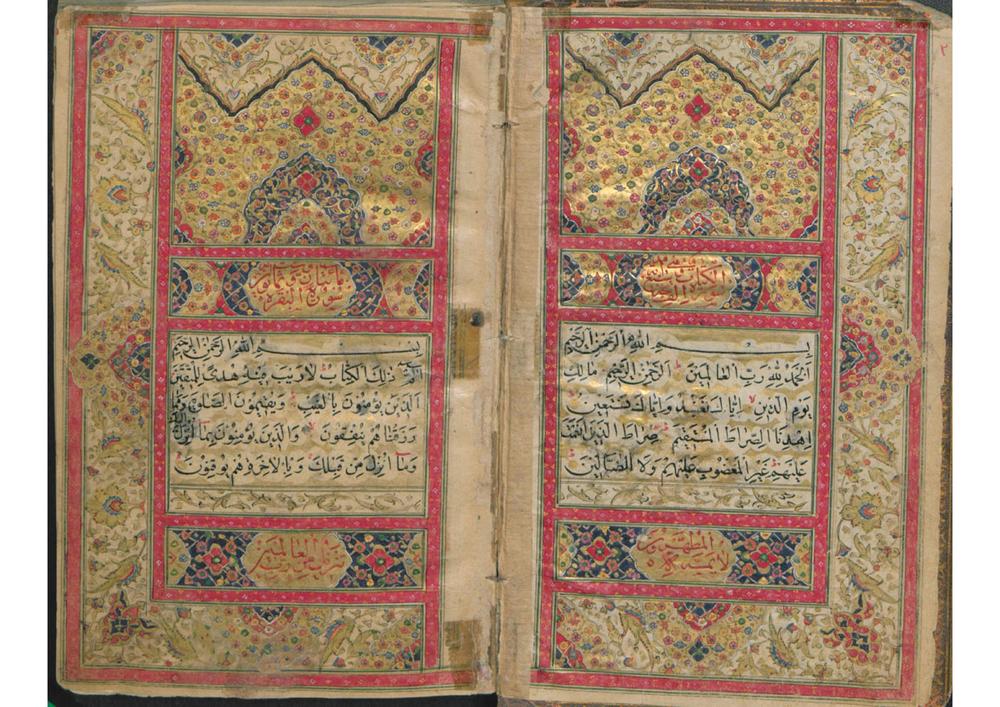 ٢
الكتاب
بسم الله الرحمن الرحيم
الحمد لله رب العالمين الرحمن الرحيم مالك
يوم الدين اياك نعبد واياك نستعين
اهدنا الصراط المستقيم صراط الذين انعمت
عليهم غير المغضوب عليهم ولا الضالين
لا يمسه الا المطهرون
سورة البقرة
بسم الله الرحمن الرحيم
الم ذلك الكتاب لا ريب فيه هدى للمتقين
الذين يؤمنون بالغيب ويقيمون الصلوة ومما
رزقناهم ينفقون والذين يؤمنون بما انزل اليك
وما انزل من قبلك وبالاخرة هم يوقنون
العالمين